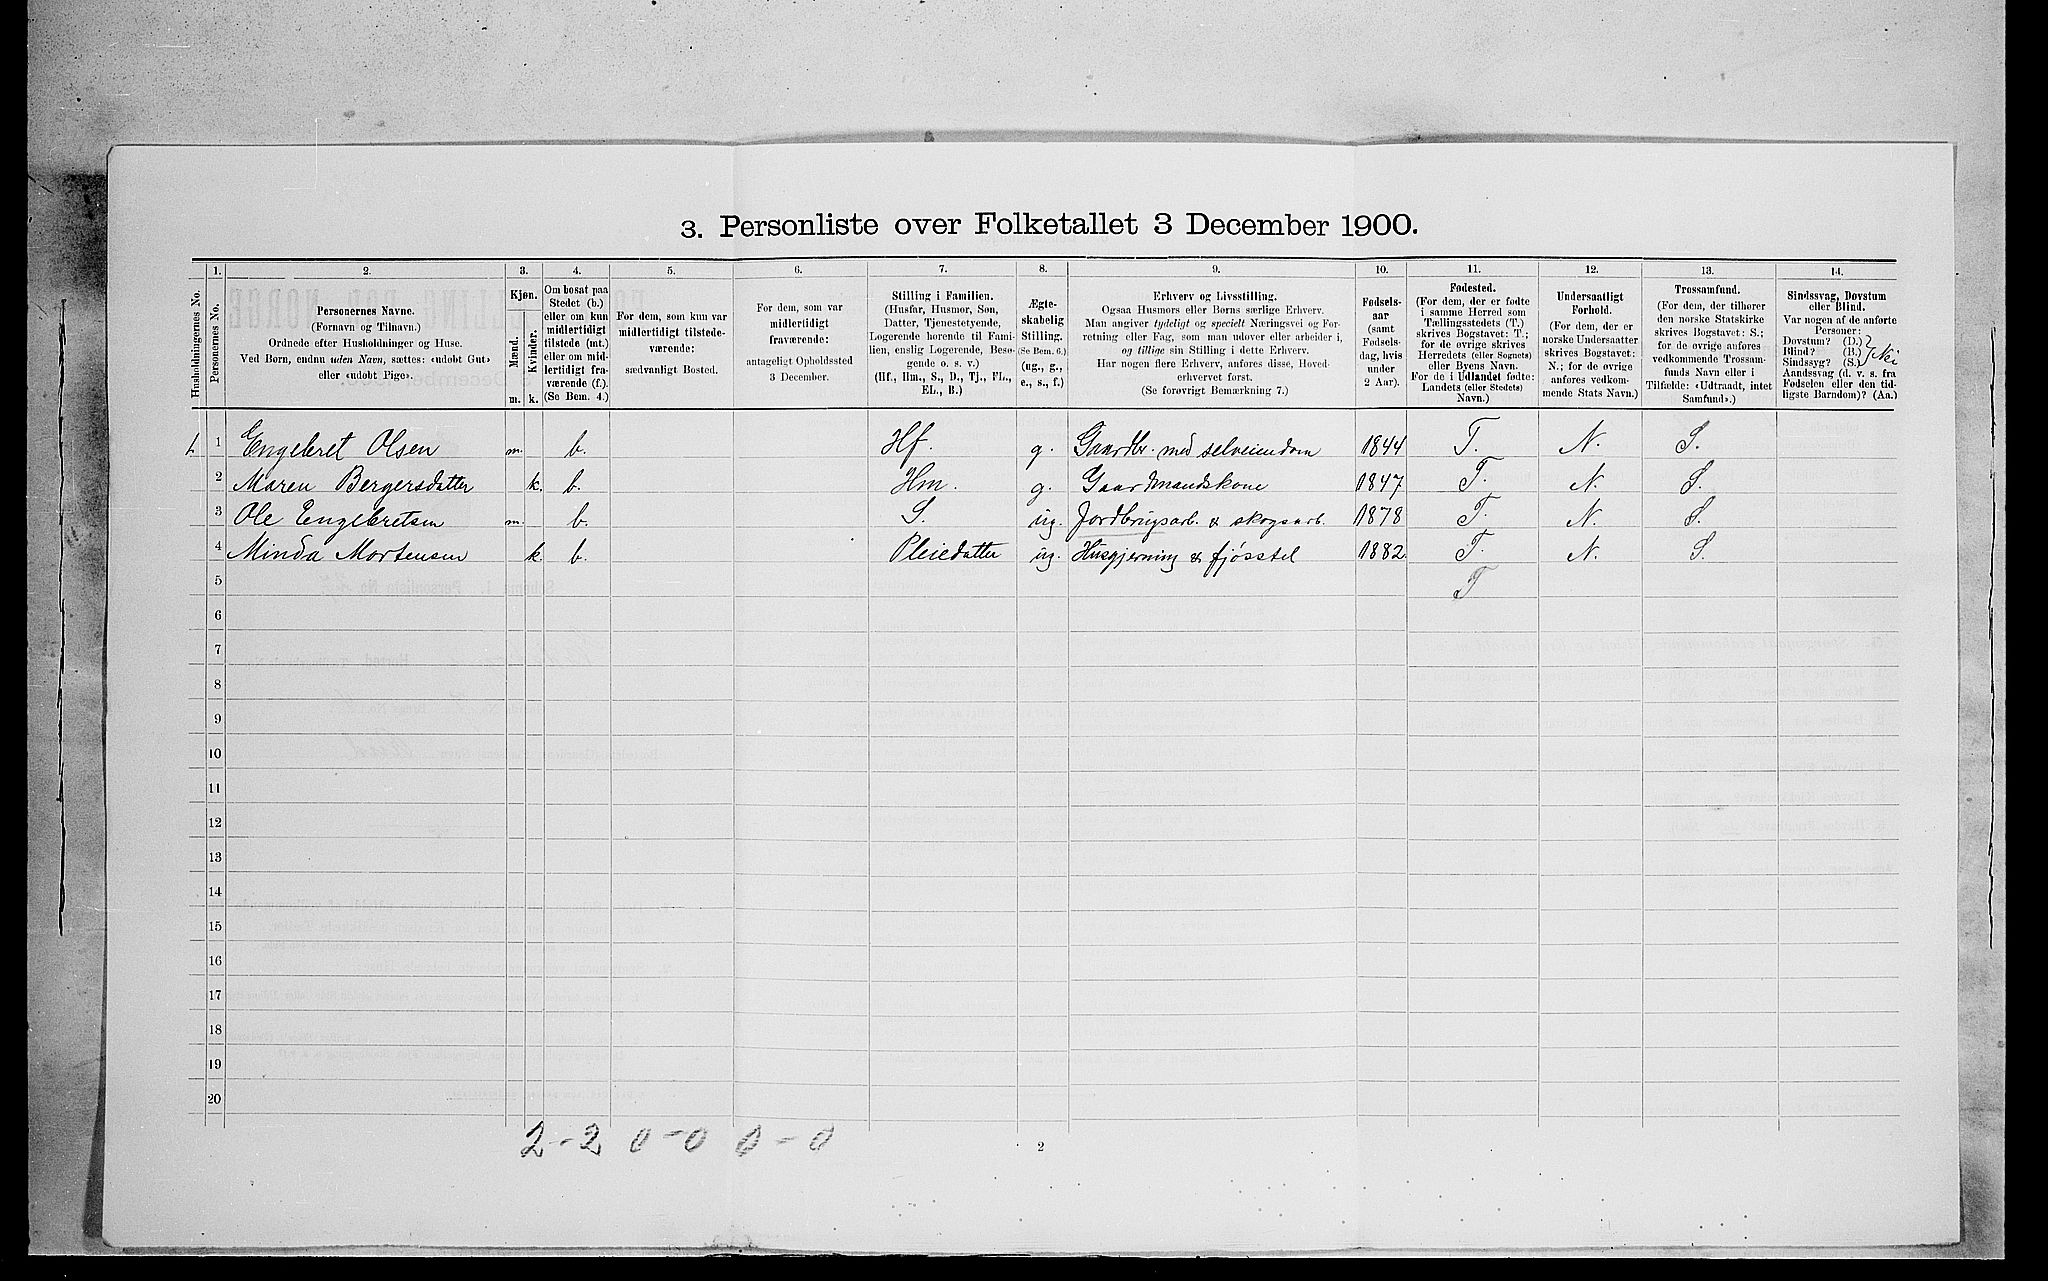 3. Personliste over Folketallet 3 December 1900.
Husholdningernes No.
1.
Personernes No.
2.
Personernes Navne.
(Fornavn og Tilnavn.)
Ordnede efter Husholdninger og Huse.
Ved Børn, endnu uden Navn, sættes: «udøbt Gut»
eller «udøbt Pige».
3.
Kjøn.
Mænd.
Kvinder.
m. k.
4.
Om bosat paa
Stedet (b.)
eller om kun
midlertidigt
tilstede (mt.)
eller om mid-
lertidigt fra-
værende (f.).
(Se Bem. 4.)
5.
For dem, som kun var
midlertidigt tilstede-
værende:
sædvanligt Bosted.
6.
For dem, som var
midlertidigt
fraværende:
antageligt Opholdssted
3 December.
7.
Stilling i Familien.
(Husfar, Husmor, Søn,
Datter, Tjenestetyende,
Logerende hørende til Fami-
lien, enslig Logerende, Besø-
gende o. s. v.)
(Hf., Hm., S., D., Tj., FL.,
EL., B.)
8.
Ægte-
skabelig
Stilling.
(Se Bem. 6.)
(ug., g.,
e., s., f.)
9.
Erhverv og Livsstilling.
Ogsaa Husmors eller Børns særlige Erhverv.
Man angiver tydeligt og specielt Næringsvei og For-
retning eller Fag, som man udøver eller arbeider i,
og tillige sin Stilling i dette Erhverv.
Har nogen flere Erhverv, anføres disse, Hoved-
erhvervet først.
(Se forøvrigt Bemærkning 7.)
10.
Fødsels-
aar
(samt
Fødsels-
dag, hvis
under
2 Aar).
11.
Fødested.
(For dem, der er fødte
i samme Herred som
Tællingsstedets (T.)
skrives Bogstavet: T.;
for de øvrige skrives
Herredets (eller Sognets)
eller Byens Navn.
For de i Udlandet fødte:
Landets (eller Stedets)
Navn.)
12.
Undersaatligt
Forhold.
(For dem, der er
norske Undersaatter
skrives Bogstavet:
N.; for de øvrige
anføres vedkom-
mende Stats Navn.)
13.
Trossamfund.
(For dem, der tilhører
den norske Statskirke
skrives Bogstavet: S.;
for de øvrige anføres
vedkommende Trossam-
funds Navn eller i
Tilfælde: «Udtraadt, intet
Samfund».)
14.
Sindssvag, Døvstum
eller Blind.
Var nogen af de anførte
Personer:
Døvstum? (D.)
Blind? (B.) Nei
Sindssyg? (S.)
Aandssvag (d. v. s. fra
Fødselen eller den tid-
ligste Barndom)? (Aa.)
1 Engebret Olsen m. b. Hf. g. Gaardbr. med selveiendom 1844 T. N. S.
2 Maren Bergersdatter k. b. Hm. g. Gaardmandskone 1847 T. N. S.
3 Ole Engebretsen m. b. S. ug. Jordbrugsarb. & skogsarb. 1878 T. N. S.
4 Minda Mortensen k b. Pleiedatter ug. Husgjerning & fjösstel 1882 T. N. S.
5 T
6
7
8
9
10
11
12
13
14
15
16
17
18
19
20
2-2 0-0 0-0
2